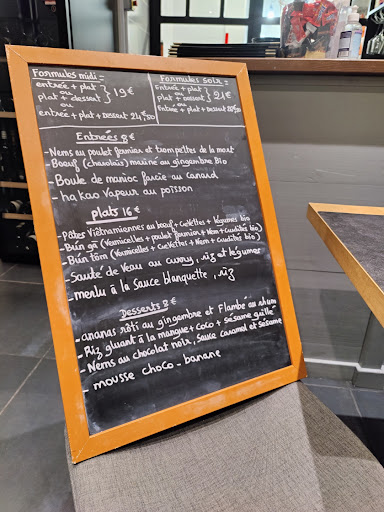 Formules midi =
entrée + plat
ou
plat + dessert
ou
entrée + plat + dessert 24,50
19€
Formules soir =
Entrée + plat
ou
plat + dessert
ou
Entrée + plat + Dessert
21€
Entrées 8€
- Nems au poulet fermier et trompettes de la mort
- Boeuf (charolais) mariné au gingembre Bio
- Boule de manioc farcie au canard
- ha kao vapeur au poisson
plats 16€
- Pâtes Viêtnamiennes au boeuf + crevettes + légumes bio
- Bún gà (Vermicelles + poulet fermier + Nem + crudités Bio)
- Bún tôm (Vermicelles + crevettes + Nem + crudités bio)
- Sauté de Veau au curry, riz et légumes
- merlu à la sauce blanquette, riz
Desserts 8€
- ananas rôti au gingembre et flambé au rhum
- Riz gluant à la mangue + coco + sésame grillé
- Nems au chocolat noir, sauce caramel et sésame
- mousse choco-banane